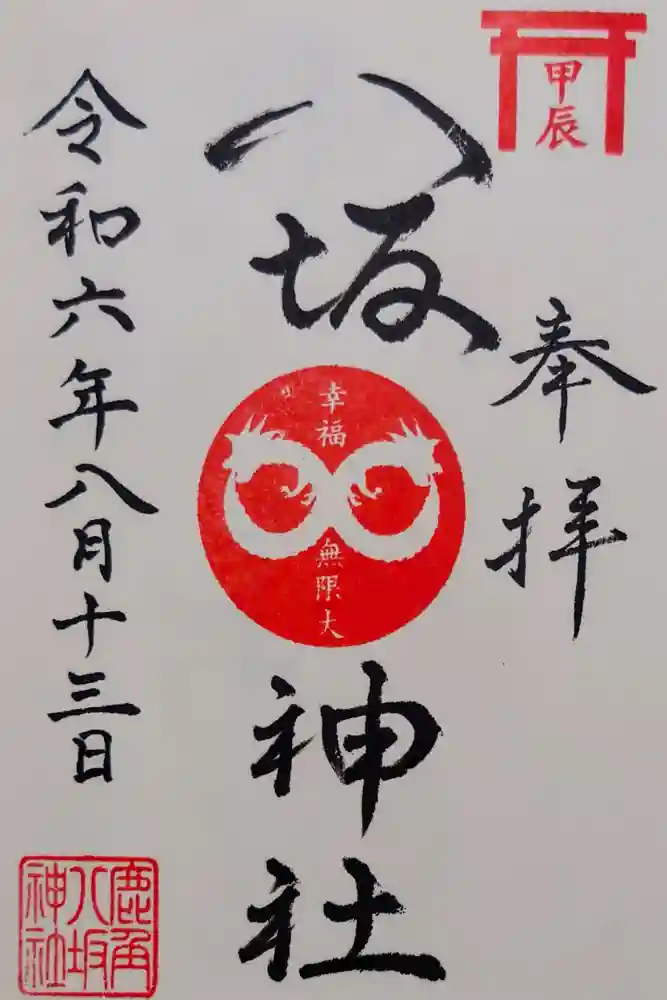 甲辰
奉拝
八坂神社
幸福
無限大
令和六年八月十三日
鹿角
八坂
神社